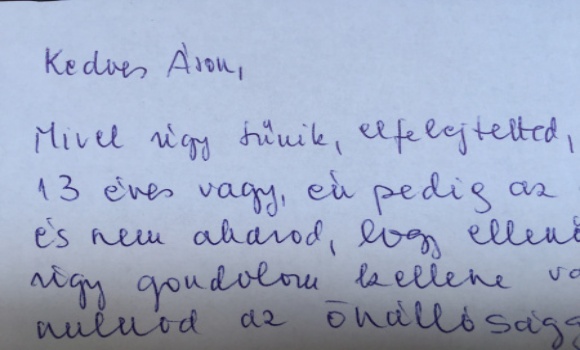 Kedves Áron,
Mivel úgy tűnik, elfelejtetted,
13 éves vagy, én pedig az
és nem akarod, hogy ellenő
úgy gondolom kellene va
nulnod az önállóságg